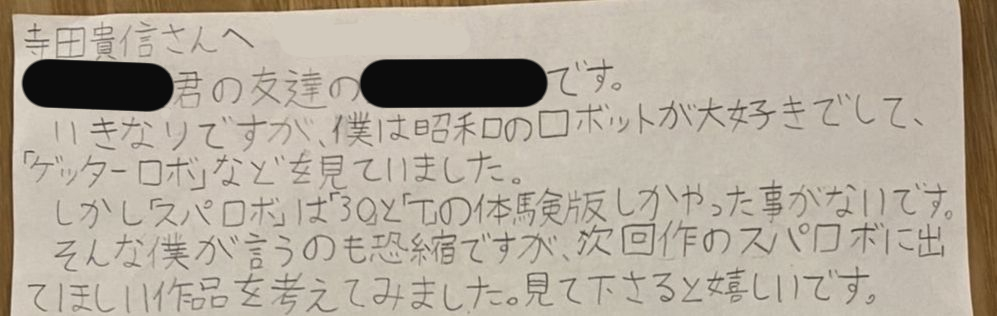 寺田貴信さんへ
君の友達の
です。
いきなりですが、僕は昭和ロのロボットが大好きでして、
「ゲッターロボ」などを見ていました。
しかし「スパロボ」は「30」と「T」の体験版しかやった事がないです。
そんな僕が言うのも恐縮ですが、次回作のスパロボに出
てほしい作品を考えてみました。見て下さると嬉しいです。